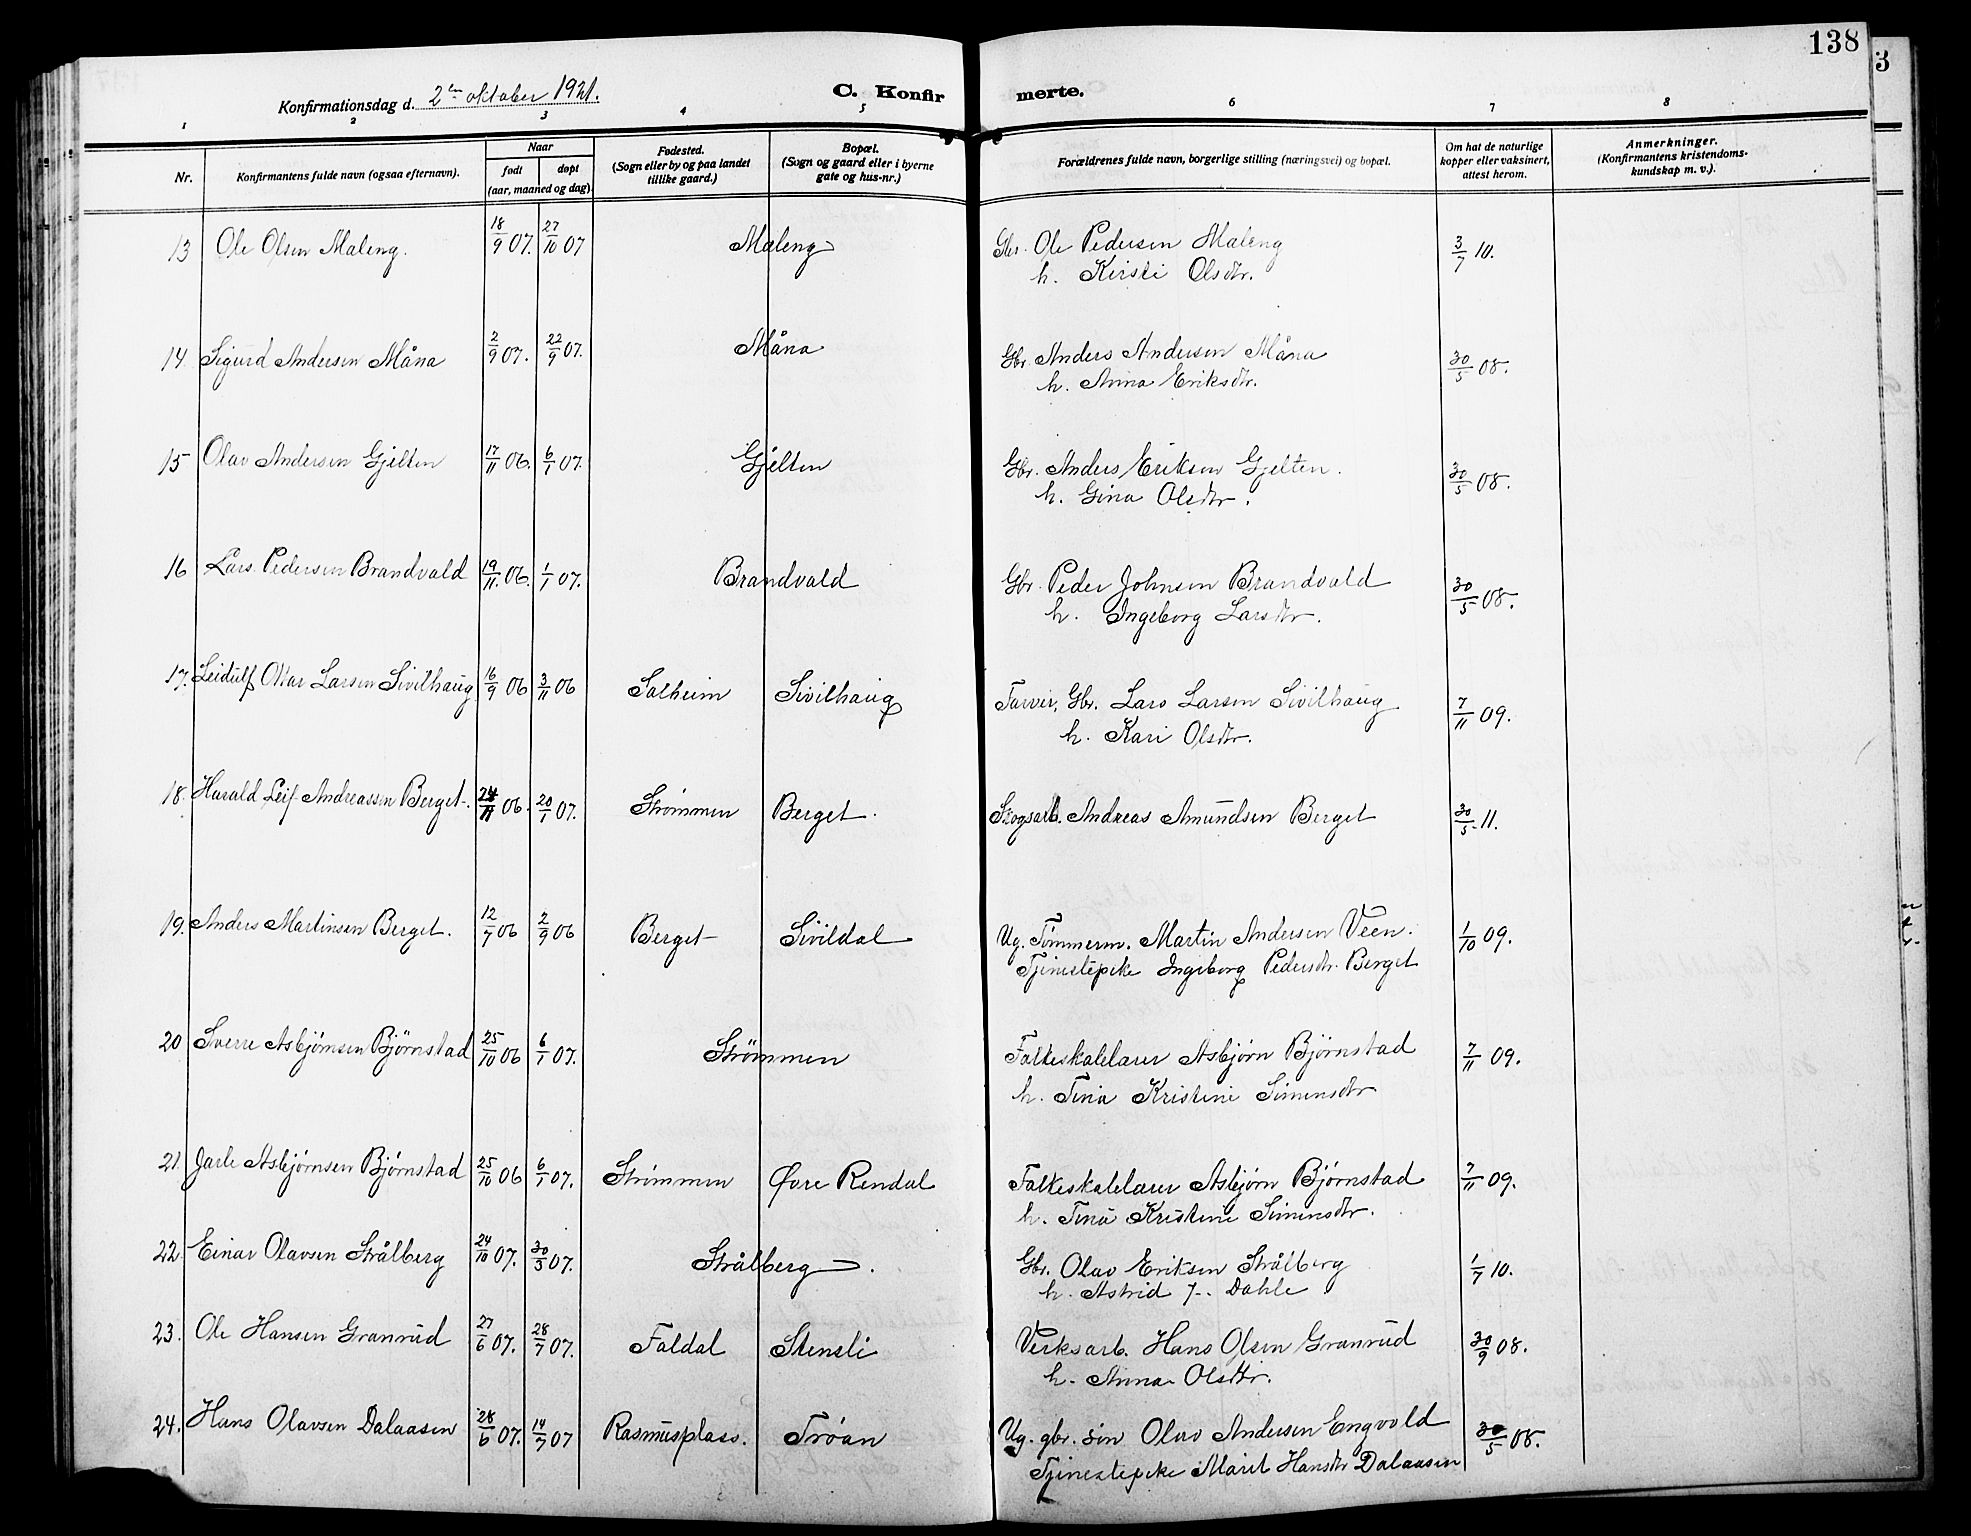 138
3
Konfirmationsdag d. 2den oktober 1921.
C. Konfirmerte.
1 2 3 4 5 6 7 8
Nr. Konfirmantens fulde navn (ogsaa efternavn). Naar født døpt (aar, maaned og dag) Fødested. (Sogn eller by og paa landet tillike gaard.) Bopæl. (Sogn og gaard eller i byerne gate og hus-nr.) Forældrenes fulde navn, borgerlige stilling (næringsvei) og bopæl. Om hat de naturlige kopper eller vaksinert, attest herom. Anmerkninger. (Konfirmantens kristendoms-kundskap m. v.).
13 Ole Olsen Maleng. 18/9 07. 27/10 07 Maleng Gbr. Ole Pedersen Maleng 3/7 10.
h. Kirsti Olsdtr.
14. Sigurd Andersen Måna 2/9 07. 22/9 07. Måna Gbr. Anders Andersen Måna 30/5 08.
h. Anna Eriksdtr.
15 Olav Andersen Gjelten 17/11 06. 6/1 07. Gjelten Gbr. Anders Eriksen Gjelten. 30/5 08.
h. Gina Olsdtr.
16 Lars Pedersen Brandvald 19/11 06. 1/1 07. Brandvald Gbr. Peder Johnsen Brandvald 30/5 08.
h. Ingeborg Larsdtr.
17. Leidulf Ottar Larsen Sivilhaug 16/9 06 3/11 06 Solheim Sivilhaug Farver, Gbr. Lars Larsen Sivilhaug 7/11 09.
h. Kari Olsdtr.
18. Harald Leif Andreassen Berget. 06. 20/1 07. Strømmen Berget. Skogsarb. Andreas Amundsen Berget 30/5 11.
19. Anders Martinsen Berget. 12/7 06 2/9 06 Berget Sivildal Ug. Tømmerm. Martin Andersen Veen. 1/10 09.
Tjenestepike Ingeborg Pedersdtr. Berget
20 Sverre Asbjørnsen Bjørnstad 25/10 06 6/1 07. Strömmen Folkeskolelærer Asbjörn Björnstad 7/11 09.
h. Tina Kristine Simensdtr
21. Jarle Asbjørnsen Bjørnstad 25/10 06 6/1 07. Strømmen Øvre Rendal Folkeskolelærer Asbjørn Bjørnstad 7/11 09.
h. Tina Kristine Simensdtr.
22. Einar Olavsen Strålberg 24/10 07. 07. Strålberg. Gbr. Olav Eriksen Strålberg 1/7 10.
h. Astrid J. Dahle
23. Ole Hansen Granrud 27/6 07. 28/7 07. Foldal Stensli Verksarb. Hans Olsen Granrud 30/9 08.
h. Anna Olsdtr.
24. Hans Olavsen Dalaasen 28/6 07. 14/7 07 Rasmusplass. Trøan Ug. gbr. søn Olav Andersen Engvold 30/5 08.
Tjenestepike Marit Hansdtr Dalaasen